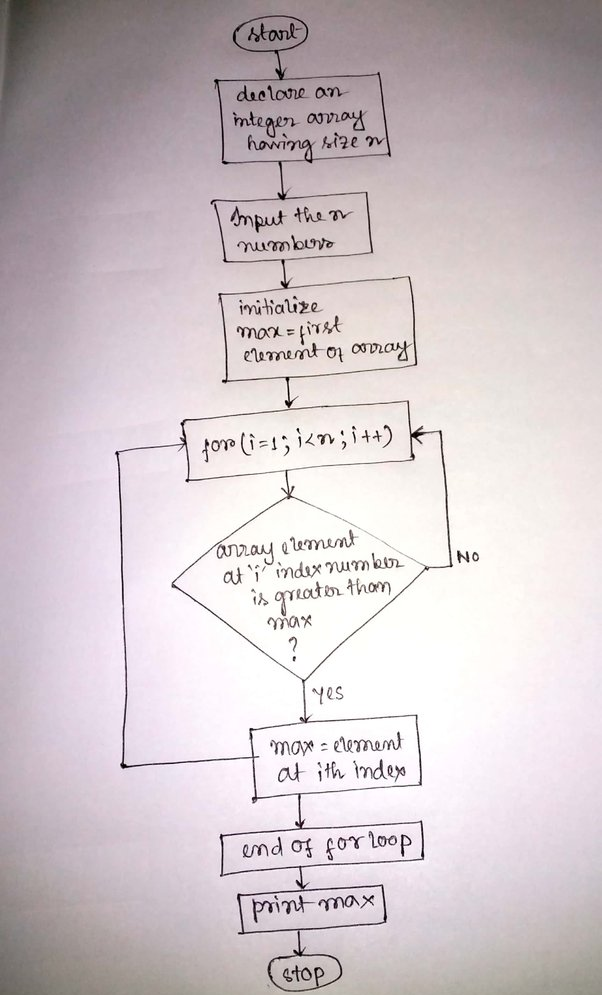 start
declare an
integer array
having size n
Input the n
numbers
initialize
max = first
element of array
for (i=1; i<n; i++)
array element
at 'i' index number
is greater than
max
?
NO
YES
max = element
at ith index
end of for loop
print max
stop